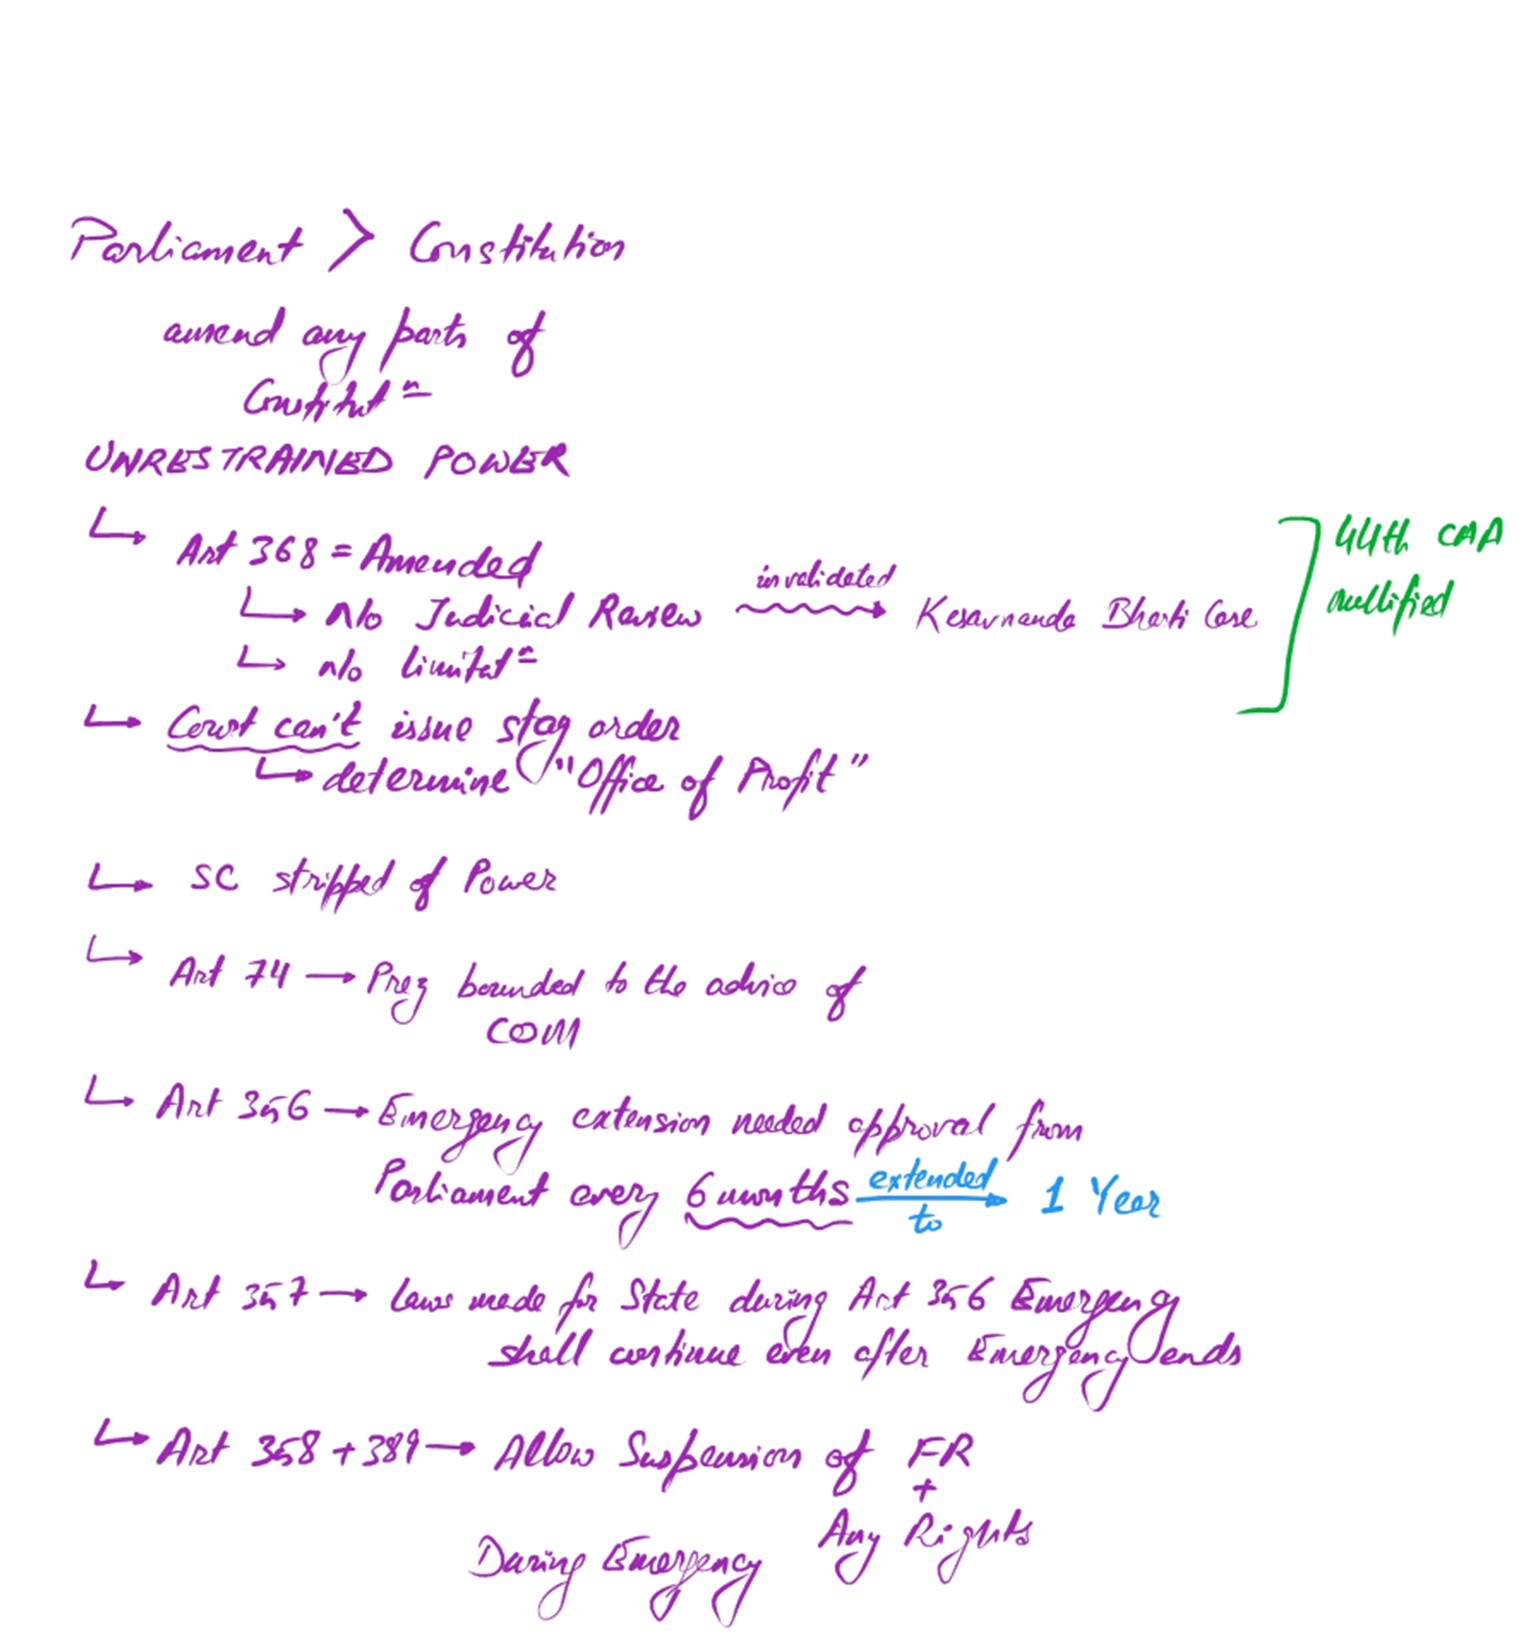 Parliament > Constitution
amend any parts of
Constitutⁿ
UNRESTRAINED POWER
↳ Art 368 = Amended
↳ n/o Judicial Review invalidated → Kesavnanda Bharti Case
44th CAA
nullified
↳ n/o limitatⁿ
↳ Court can't issue stay order
↳ determine "Office of Profit"
↳ SC stripped of Power
↳ Art 74 → Prez bounded to the advice of
COM
↳ Art 356 → Emergency extension needed approval from
Parliament every 6 months extended to → 1 Year
↳ Art 357 → Laws made for State during Art 356 Emergency
shall continue even after Emergency ends
↳ Art 358 + 389 → Allow Suspension of FR
+
Any Rights
During Emergency